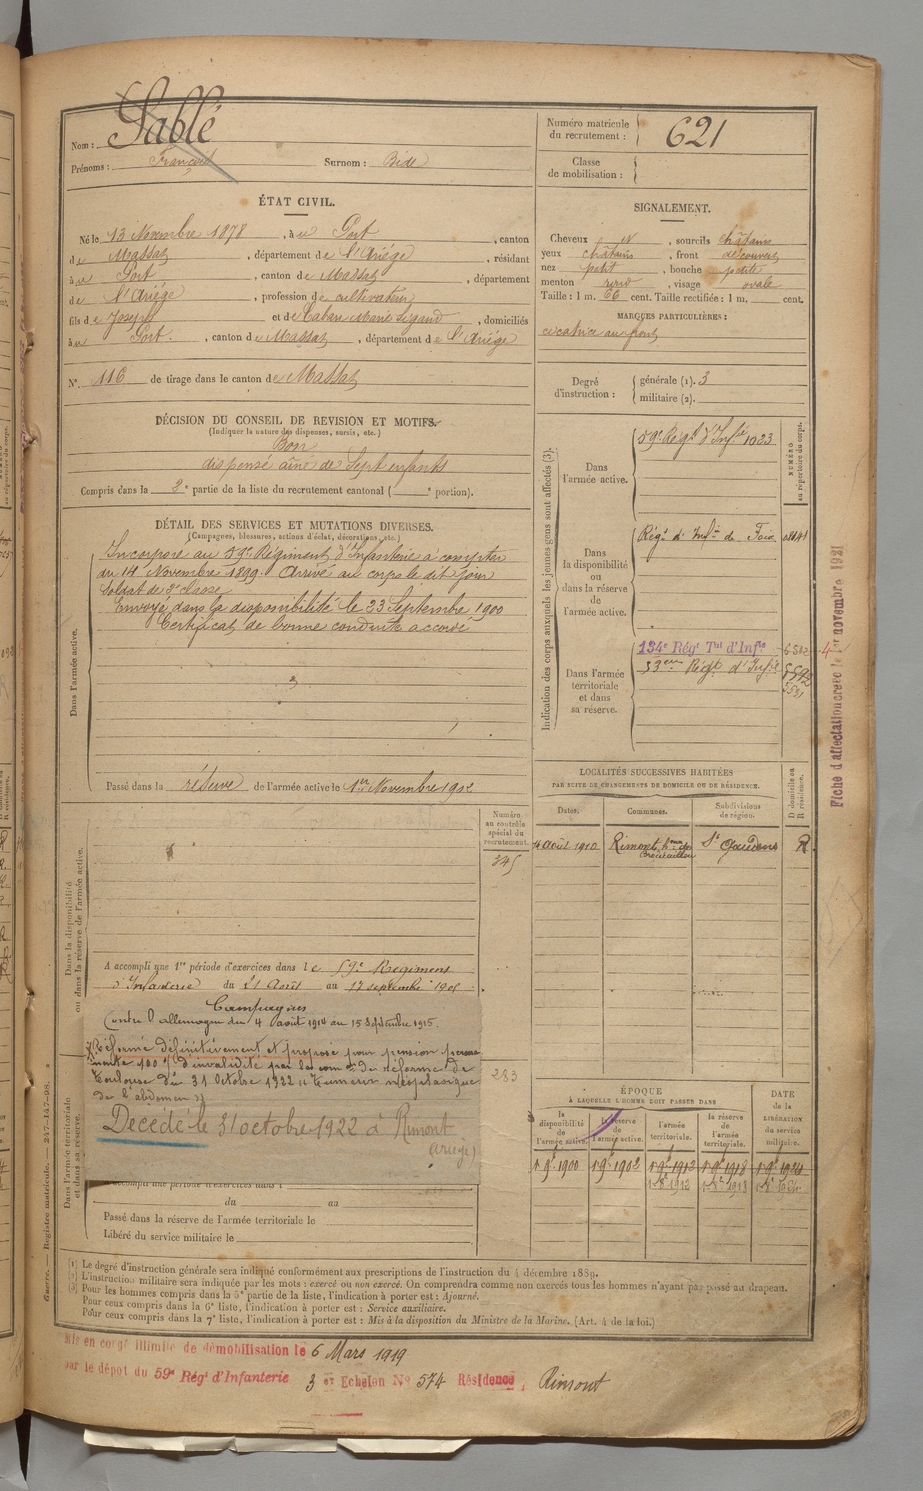 Nom : Sablé
Prénoms : François Surnom : Bide
Numéro matricule du recrutement : 621
Classe de mobilisation :
ÉTAT CIVIL.
Né le 13 Novembre 1878, à Port, canton
de Massat, département de l'Ariège, résidant
à Port, canton de Massat, département
de l'Ariège, profession de cultivateur
fils de Joseph et de Caban Marie, domiciliés
à Port, canton de Massat, département de l'Ariège
N° 116 de tirage dans le canton de Massat
SIGNALEMENT.
Cheveux N, sourcils châtains
yeux châtains, front découvert
nez petit, bouche petite
menton rond, visage ovale
Taille : 1 m. 66 cent. Taille rectifiée : 1 m. cent.
MARQUES PARTICULIÈRES :
cicatrice au front
Degré d'instruction : générale (1). 3
militaire (2).
DÉCISION DU CONSEIL DE REVISION ET MOTIFS.
(Indiquer la nature des dispenses, sursis, etc.)
Bon
dispensé aîné de sept enfants
Compris dans la 2e partie de la liste du recrutement cantonal ( e portion).
DÉTAIL DES SERVICES ET MUTATIONS DIVERSES.
(Campagnes, blessures, actions d'éclat, décorations, etc.)
Dans l'armée active.
Incorporé au 59e Régiment d'Infanterie à compter
du 14 Novembre 1899. Arrivé au corps le dit jour
soldat de 2e classe
Envoyé dans la disponibilité le 23 Septembre 1900
Certificat de bonne conduite accordé
Passé dans la réserve de l'armée active le 1er Novembre 1902
Indication des corps auxquels les jeunes gens sont affectés (3).
NUMÉRO au répertoire du corps.
Dans l'armée active.
59e Régt d'Infie 1023
Dans la disponibilité ou dans la réserve de l'armée active.
Régt d'Infie de Foix
Dans l'armée territoriale et dans sa réserve.
134e Régt Tal d'Infie
Régt d'Infie
Fiche d'affectation créée le 1er novembre 1921
LOCALITÉS SUCCESSIVES HABITÉES
PAR SUITE DE CHANGEMENTS DE DOMICILE OU DE RÉSIDENCE.
Dates. Communes. Subdivisions de région. D domicile ou R résidence.
août 1910 Rimont St Gaudens R.
Dans la disponibilité ou dans la réserve de l'armée active.
Numéro au contrôle spécial du recrutement.
345
A accompli une 1re période d'exercices dans le 59e Régiment
d'Infanterie du 21 Août au 17 septembre 1905
Campagnes
Contre l'allemagne du 4 août 1914 au 15 Septembre 1915.
Réformé définitivement et proposé pour pension perma
nente 100 % d'invalidité par la com on de réforme de
Toulouse du 31 Octobre 1922 "Tumeur néoplasique
de l'abdomen"
Décédé le 31 octobre 1922 à Rimont
(Ariège)
283
Dans l'armée territoriale et dans sa réserve.
accompli une période d'exercices dans l
du au
Passé dans la réserve de l'armée territoriale le
Libéré du service militaire le
ÉPOQUE
À LAQUELLE L'HOMME DOIT PASSER DANS
la disponibilité de l'armée active. la réserve de l'armée active. l'armée territoriale. la réserve de l'armée territoriale.
DATE de la LIBÉRATION du service militaire.
1 9e 1900 1 9e 1902 1 9e 1912 1 9e 1918 1 9e 1924
Guerre. — Registre matricule. — 247-147-98.
(1) Le degré d'instruction générale sera indiqué conformément aux prescriptions de l'instruction du 4 décembre 1889.
(2) L'instruction militaire sera indiquée par les mots : exercé ou non exercé. On comprendra comme non exercés tous les hommes n'ayant pas passé au drapeau.
(3) Pour les hommes compris dans la 5e partie de la liste, l'indication à porter est : Ajourné.
Pour ceux compris dans la 6e liste, l'indication à porter est : Service auxiliaire.
Pour ceux compris dans la 7e liste, l'indication à porter est : Mis à la disposition du Ministre de la Marine. (Art. 4 de la loi.)
Mis en congé illimité de démobilisation le 6 Mars 1919
par le dépôt du 59e Régt d'Infanterie 3 e Echelon N° 574 Résidence, Rimont